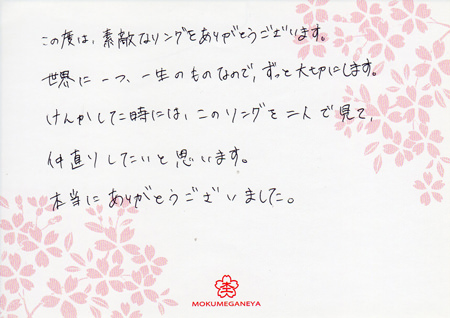 この度は、素敵なリングをありがとうございます。
世界に一つ、一生のものなので、ずっと大切にします。
けんかした時には、このリングを二人で見て、
仲直りしたいと思います。
本当にありがとうございました。
MOKUMEGANEYA